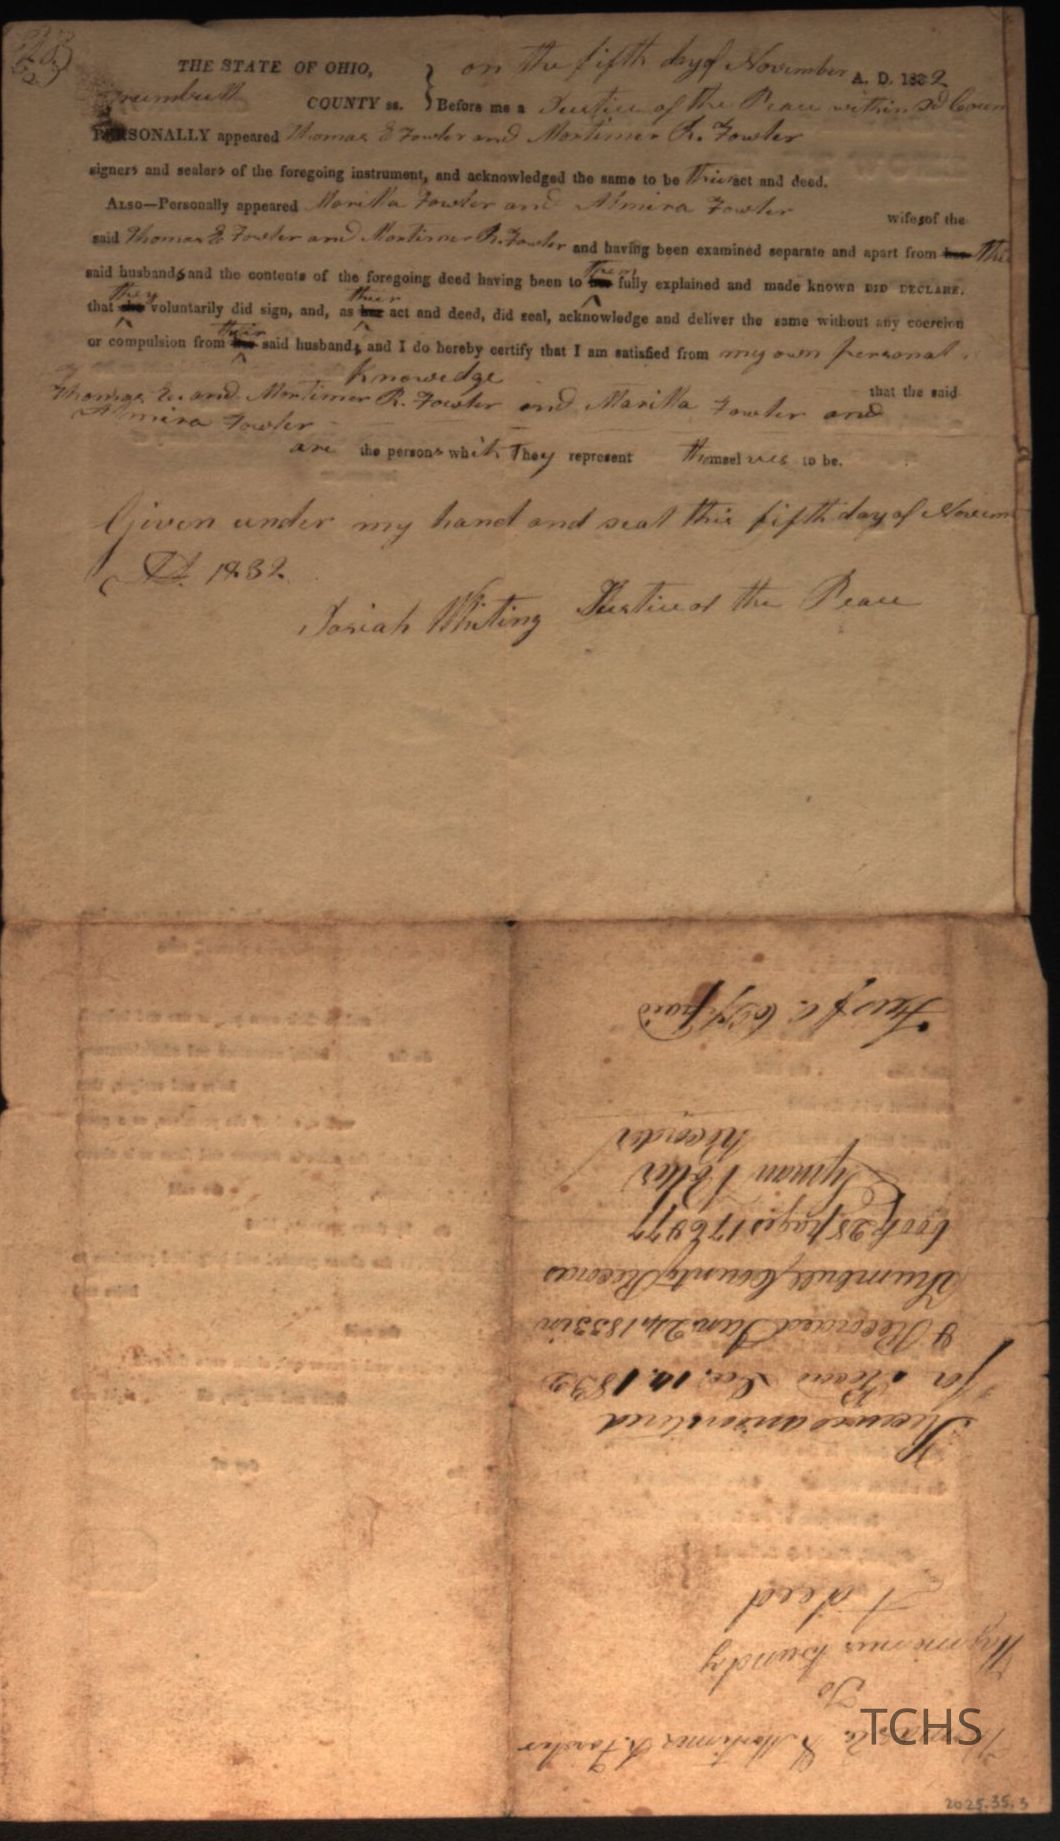 THE STATE OF OHIO, } on the fifth day of November A. D. 1832
Trumbull COUNTY ss. } Before me a Justice of the Peace within sd Coun
PERSONALLY appeared Thomas E Fowler and Mortimer R. Fowler
signers and sealers of the foregoing instrument, and acknowledged the same to be their act and deed.
ALSO—Personally appeared Marilla Fowler and Almira Fowler wifes of the
said Thomas E Fowler and Mortimer R. Fowler and having been examined separate and apart from her their
said husbands and the contents of the foregoing deed having been to her them fully explained and made known DID DECLARE,
that she they voluntarily did sign, and, as her their act and deed, did seal, acknowledge and deliver the same without any coercion
or compulsion from her their said husbands, and I do hereby certify that I am satisfied from my own personal
knowedge that the said
Thomas E. and Mortimer R. Fowler and Marilla Fowler and
Almira Fowler
are the persons which they represent themselves to be.
Given under my hand and seal this fifth day of Novem
AD. 1832
Josiah Whiting Justice of the Peace
Thomas E. & Mortimer R. Fowler
To
Bundy
A deed
Received
for Record Dec. 10. 1832
& Recorded Jan 24, 1833 in
Trumbull County Records
book 25 pages 176 & 77
Lyman Potter
Recorder
paid
TCHS
2025.35.3